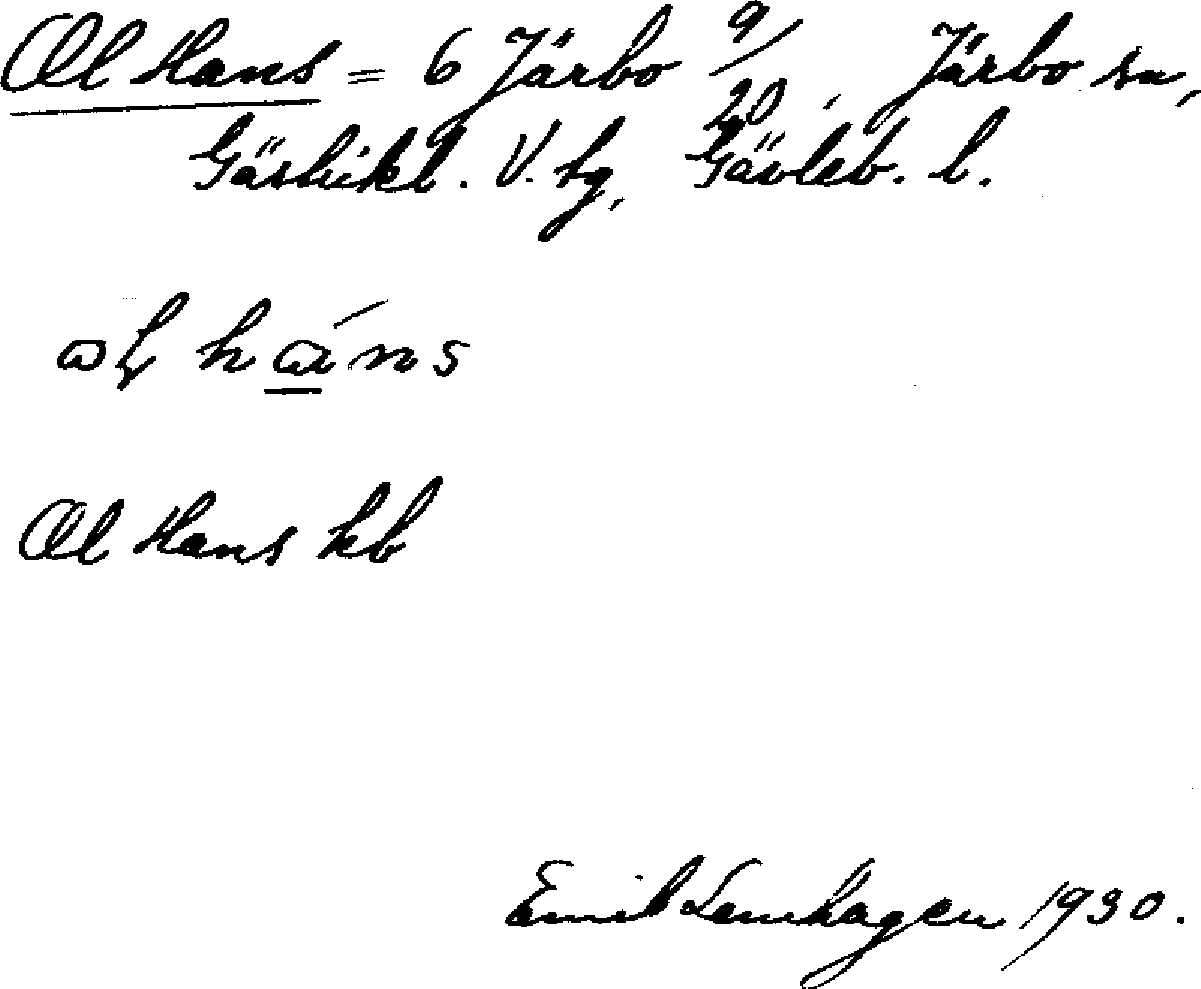 Ol Hans = 6 Järbo 9/20, Järbo sn,
Gästrikl. V. tg, Gävleb. l.
Ol Hans kb
Emil Lenhagen 1930.